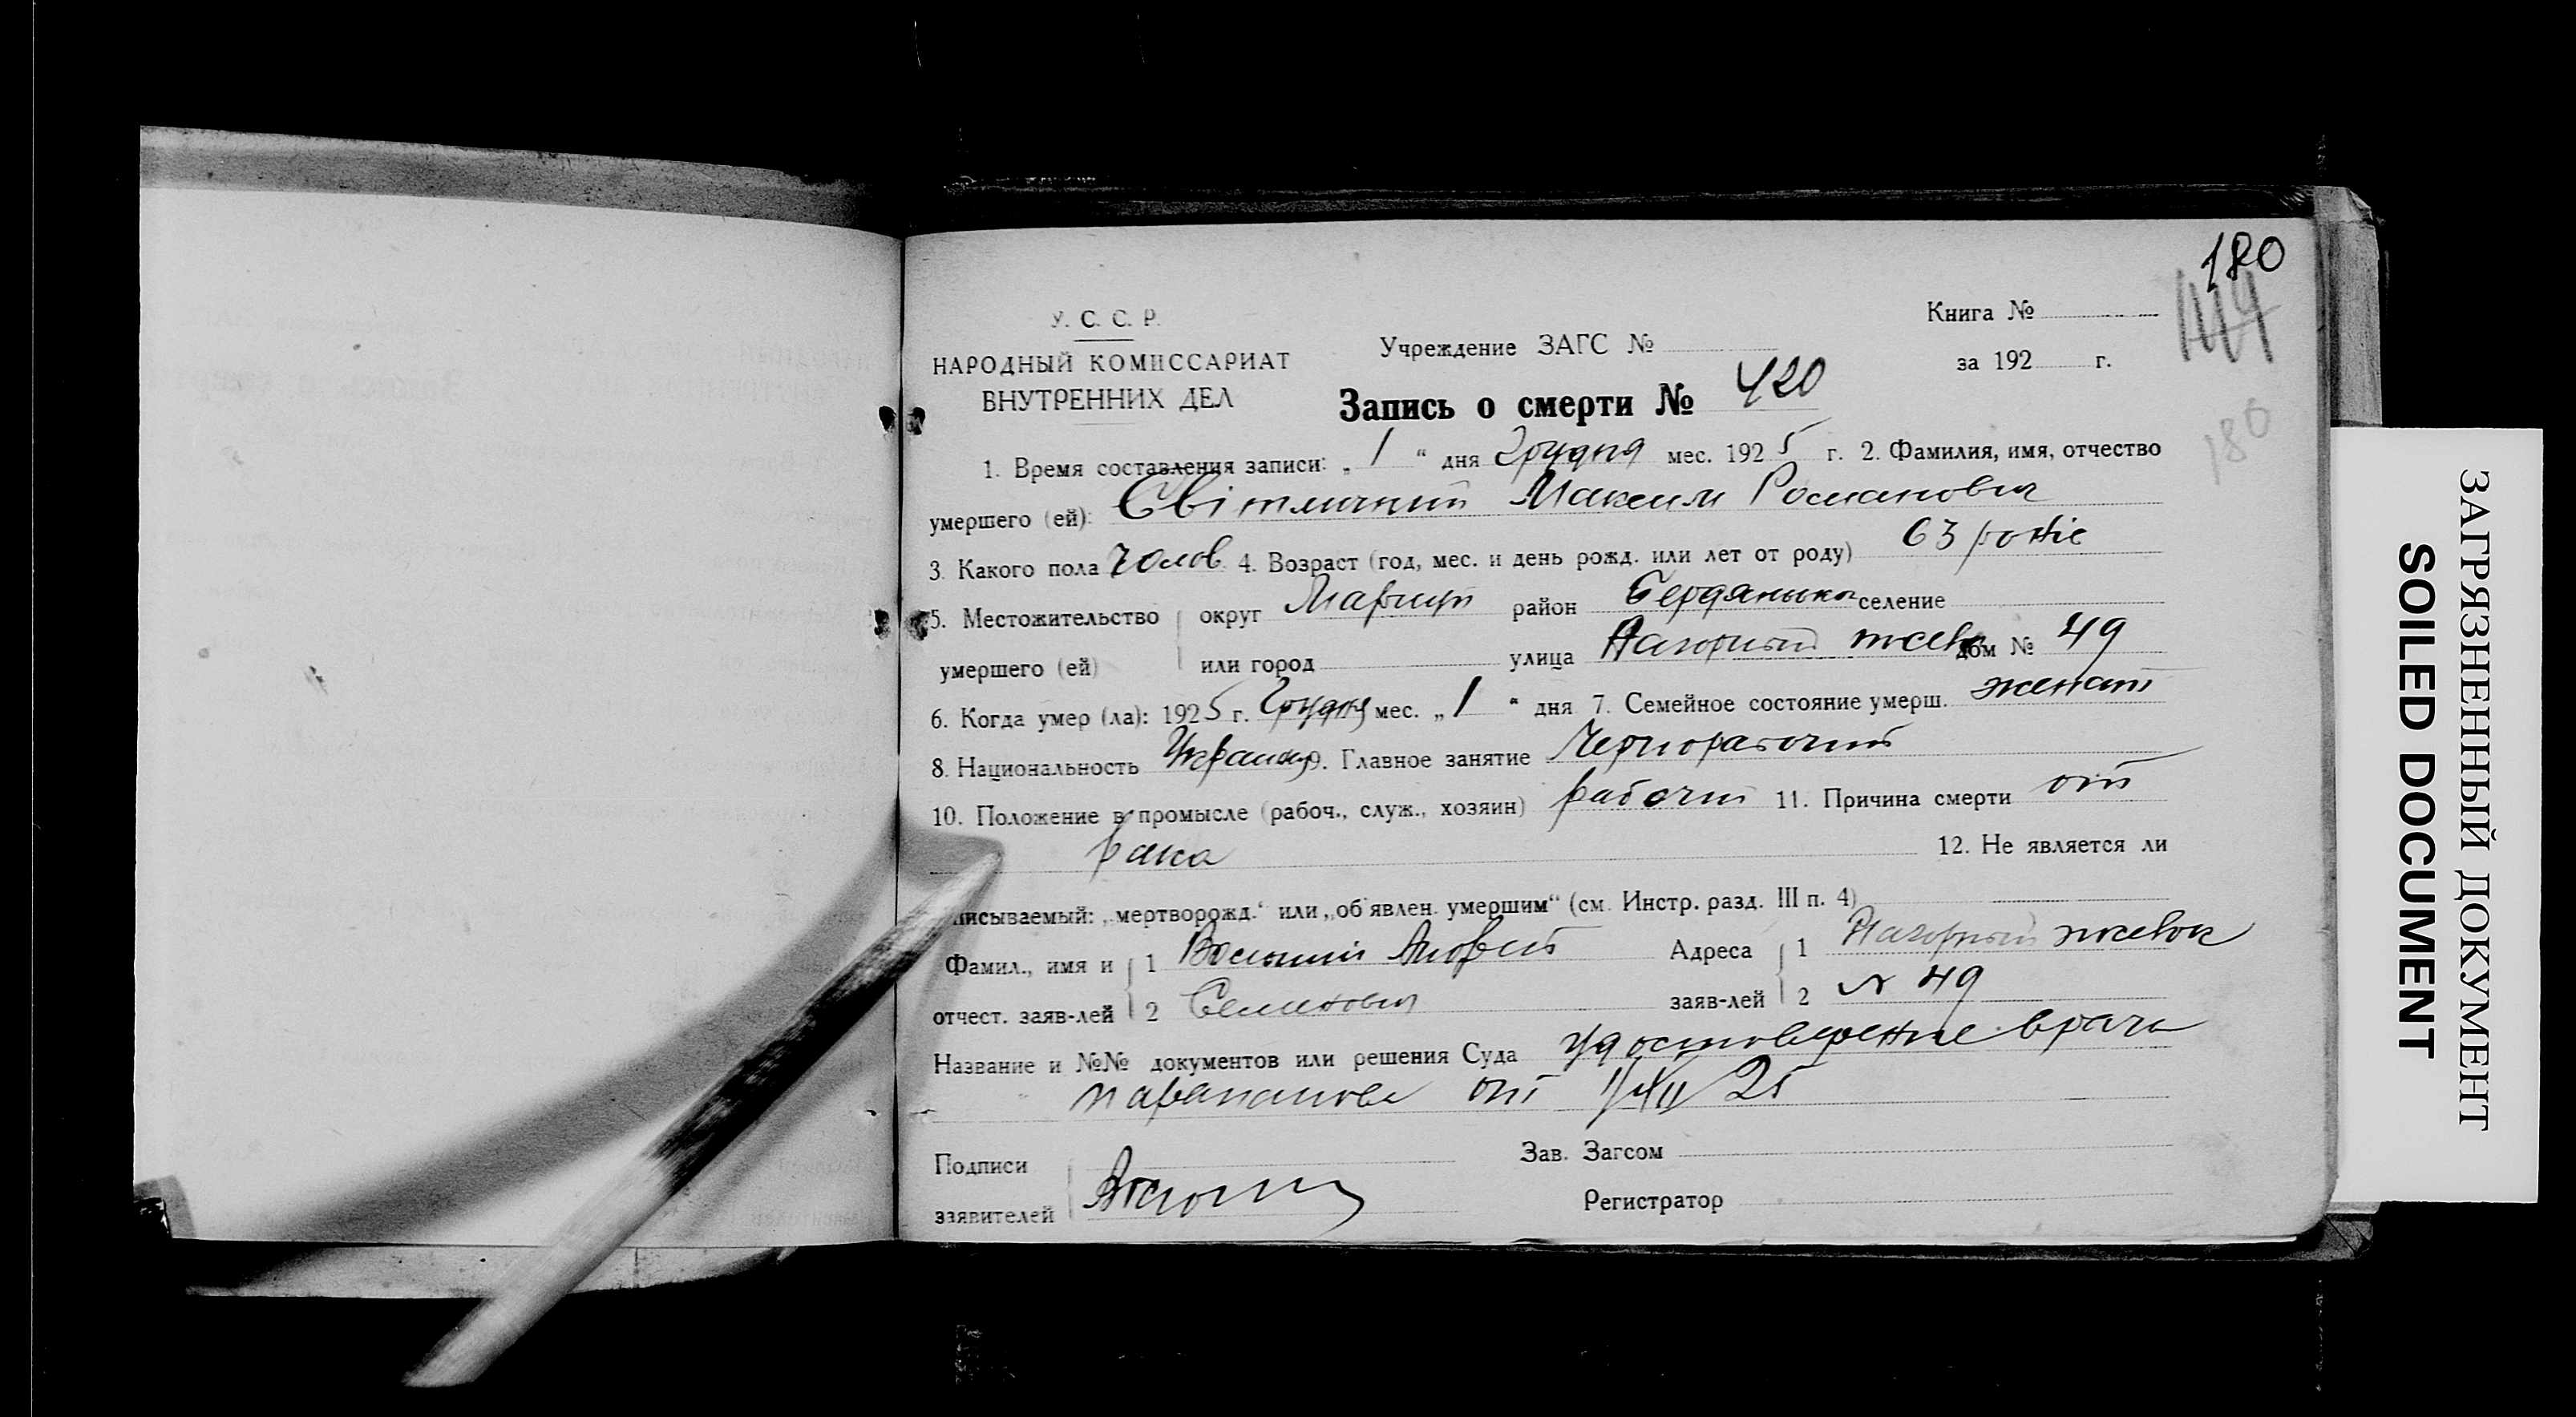 180
У. С. С. Р.
Книга №
144
НАРОДНЫЙ КОМИССАРИАТ
Учреждение ЗАГС №
за 192 г.
ВНУТРЕННИХ ДЕЛ
Запись о смерти № 420
180
1. Время составления записи: „ 1 “ дня Грудня мес. 1925 г. 2. Фамилия, имя, отчество
умершего (ей): Світличний Максим Романович
3. Какого пола Чолов 4. Возраст (год, мес. и день рожд. или лет от роду) 63 років
5. Местожительство округ Мариуп район Бердянськ селение
умершего (ей) или город улица Нагорный дом № 49
6. Когда умер (ла): 1925 г. Грудня мес. „ 1 “ дня 7. Семейное состояние умерш. женат
8. Национальность Украин 9. Главное занятие Чернорабочий
10. Положение в промысле (рабоч., служ., хозяин) рабочий 11. Причина смерти от
рака 12. Не является ли
писываемый: „мертворожд.“ или „об'явлен. умершим“ (см. Инстр. разд. III п. 4)
Фамил., имя и 1 Андрей Адреса 1 Нагорный
отчест. заяв-лей 2 Семенович заяв-лей 2 № 49
Название и №№ документов или решения Суда удостоверение врача
от 1/XII 25
Подписи Зав. Загсом
заявителей Регистратор
ЗАГРЯЗНЕННЫЙ ДОКУМЕНТ
SOILED DOCUMENT